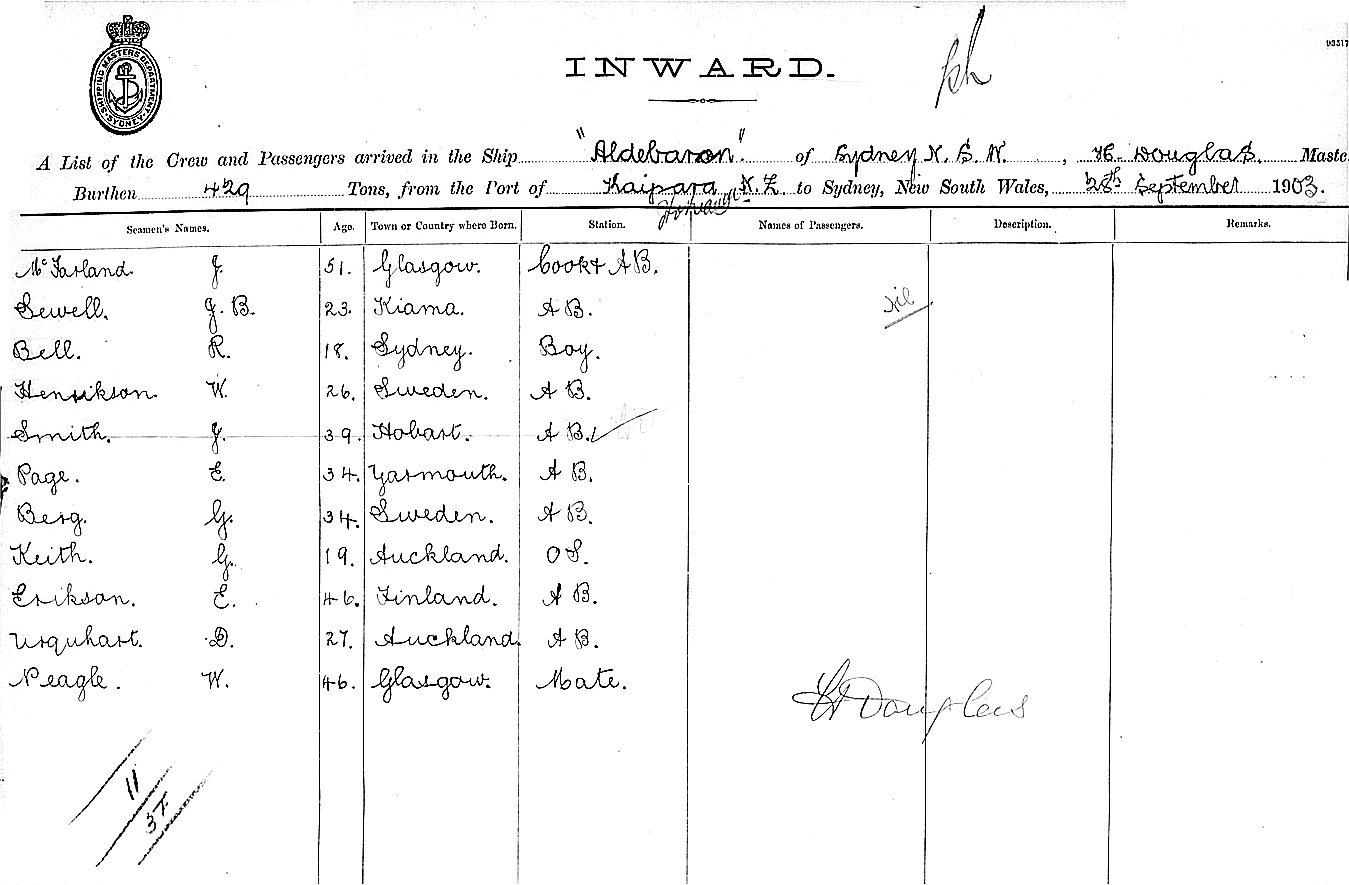 93517
INWARD.
SHIPPING MASTERS DEPARTMENT SYDNEY
A List of the Crew and Passengers arrived in the Ship "Aldebaron" of Sydney N. S. W. , H. Douglas. Maste
Burthen 429 Tons, from the Port of Kaipara N.Z to Sydney, New South Wales, 28th September 1903.
Seamen's Names. Age. Town or Country where Born. Station. Names of Passengers. Description. Remarks.
McFarland J. 51. Glasgow. Cook & AB.
Sewell. J. B. 23. Kiama. A B. nil
Bell. R. 18. Sydney. Boy.
Henrikson W. 26. Sweden. A B.
Smith. J. 39. Hobart. A B.
Page. E. 34. Yarmouth. A B.
Berg. G. 34. Sweden. A B.
Keith. G. 19. Auckland. O S.
Erikson. E. 46. Finland. A B.
Urquhart. D. 27. Auckland. A B.
Neagle. W. 46. Glasgow. Mate.
H Douglas
11
37